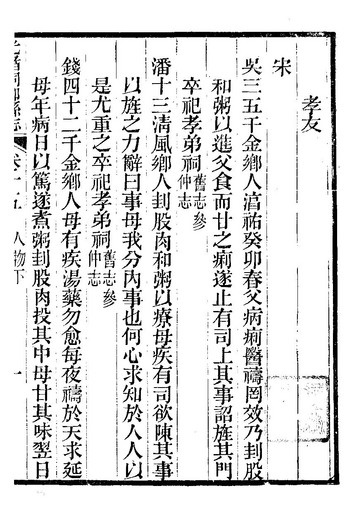 孝友
宋
吳三五千金鄉人淯祐癸卯春父病痢醫禱罔效乃刲股
和粥以進父食而甘之痢遂止有司上其事詔旌其門
卒祀孝弟祠舊志參仲志
潘十三淸風鄉人刲股肉和粥以療母疾有司欲陳其事
以旌之力辭曰事母我分內事也何心求知於人人以
是尤重之卒祀孝弟祠舊志參仲志
錢四十二千金鄉人母有疾湯藥勿愈每夜禱於天求延
母年病日以篤遂煮粥刲股肉投其中母甘其味翌日
卷十五 人物下 一